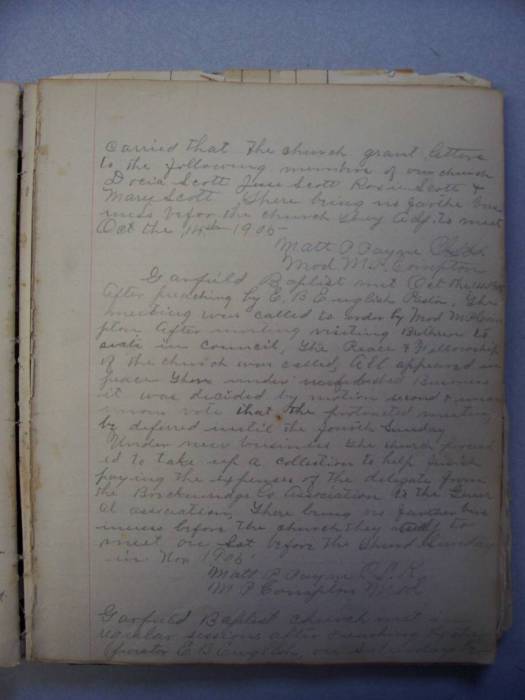 carried that the church grant letters
to the following members of our church
Docia Scott June Scott Rosie Scott &
Mary Scott, There being no further bus
iness before the church they adj. to meet
Oct the 14th 1905
Matt P Payne Clk.
Mod M. P. Compton
Garfield Baptist met Oct the 1905
After preaching by E. B English Pastor, The
meeting was called to order by Mod M P Com
pton After inviting visiting Brethren to
seats in council, The Peace & Fellowship
of the church was called, All appeared in
peace There under Business
it was decided by motion second & unan
imous vote that the protracted meeting
be deferred until the fourth Sunday
Under new business the church proceed
ed to take up a collection to help finish
paying the expenses of the delegate from
the Breckenridge Co Association to the Gener
al association, There being no further bus
iness before the church they adj to
meet on Sat before the Sunday
in Nov 1905
Matt P Payne C. L. K.
M P Compton Mod
Garfield Baptist church met in
regular sessions after preaching by the
pastor E B English, on Saturday